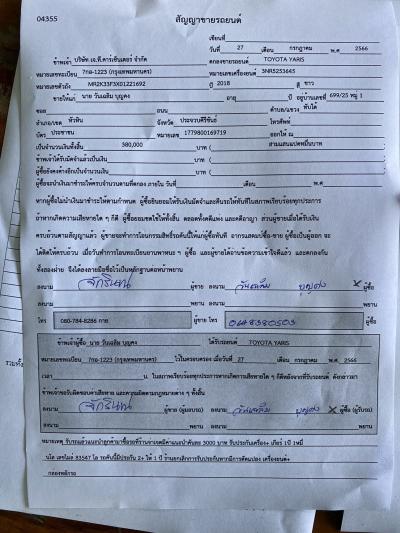 04355
สัญญาขายรถยนต์
เขียนที่
วันที่ 27 เดือน กรกฎาคม พ.ศ 2566
ข้าพเจ้า บริษัท เจ.ที.คาร์เซ็นเตอร์ จำกัด ตกลงขายรถยนต์ TOYOTA YARIS
หมายเลขทะเบียน 7กอ-1223 (กรุงเทพมหานคร) หมายเลขเครื่องยนต์ 3NR5253645
หมายเลขตัวถัง MR2K33F3X01221692 ปี 2018 สี ขาว
ขายให้แก่ นาย วันเฉลิม บุญคง อายุ ปี อยู่บ้านเลขที่ 699/25 หมู่ 1
ซอย ถนน ตำบล/แขวง ทับใต้
อำเภอ/เขต หัวหิน จังหวัด ประจวบคีรีขันธ์ โทรศัพท์
บัตร ประชาชน หมายเลข 1779800169719 ออกให้ ณ
เป็นจำนวนเงินทั้งสิ้น 380,000 บาท ( สามแสนแปดหมื่นบาท
ข้าพเจ้าได้รับมัดจำแล้วเป็นเงิน บาท (
ผู้ซื้อยังคงค้างอีกเป็นจำนวนเงิน บาท (
ผู้ซื้อจะนำเงินมาชำระให้ครบจำนวนตามที่ตกลง ภายใน วันที่ เดือน พ.ศ
หากผู้ซื้อไม่นำเงินมาชำระให้ตามกำหนด ผู้ซื้อยินยอมให้ริบเงินมัดจำและคืนรถให้ทันทีในสภาพเรียบร้อยทุกประการ
ถ้าหากเกิดความเสียหายใด ๆ ก็ดี ผู้ซื้อยอมชดใช้ให้ทั้งสิ้น ตลอดทั้งคดีแพ่ง และคดีอาญา ส่วนผู้ขายเมื่อได้รับเงิน
ครบถ้วนตามสัญญาแล้ว ผู้ขายจะทำการโอนกรรมสิทธิ์รถคันนี้ให้แก่ผู้ซื้อทันที อากรแสตมป์ซื้อ-ขาย ผู้ซื้อเป็นผู้ออก จะ
ได้ติดให้ครบถ้วน เมื่อวันทำการโอนทะเบียนยานพาหนะ ๆ ผู้ซื้อ และผู้ขายได้อ่านข้อความเข้าใจดีแล้ว และตกลงกัน
ทั้งสองฝ่าย จึงได้ลงลายมือชื่อไว้เป็นหลักฐานต่อหน้าพยาน
ลงนาม ผู้ขาย ลงนาม วันเฉลิม บุญคง X ผู้ซื้อ
ลงนาม พยาน ลงนาม พยาน
โทร 080-784-8286 กาย ผู้ขาย โทร ผู้ซื้อ
ข้าพเจ้าผู้ซื้อ นาย วันเฉลิม บุญคง ได้รับรถยนต์ TOYOTA YARIS
หมายเลขทะเบียน 7กอ-1223 (กรุงเทพมหานคร) ไว้ในครอบครอง เมื่อวันที่ 27 เดือน กรกฎาคม พ.ศ 2566
เวลา น. ในสภาพเรียบร้อยทุกประการหากเกิดการเสียหายใด ๆ ก็ดีหลังจากที่รับรถยนต์ ดังกล่าวมา
ข้าพเจ้าขอรับผิดชอบค่าเสียหาย และความผิดตามกฎหมายต่าง ๆ ทั้งสิ้น
ลงนาม ผู้ขาย (ผู้มอบรถ) ลงนาม วันเฉลิม บุญคง X ผู้ซื้อ (ผู้รับรถ)
ลงนาม พยาน ลงนาม พยาน
หมายเหตุ รับรถแล้วแนะนำลูกค้ามาซื้อรถที่ร้านจ่าเจตมีค่าแนะนำคันละ 3000 บาท รับประกันเครื่อง+ เกียร์ 1ปี 1หมื่
นโล เลขไมล์ 83547 โล รถคันนี้มีประกัน 2+ ให้ 1 ปี ร้านยกเลิกการรับประกันหากมีการดัดแปลง เครื่องยนต์+
กล่องพลักรถ
รวมทั้ง